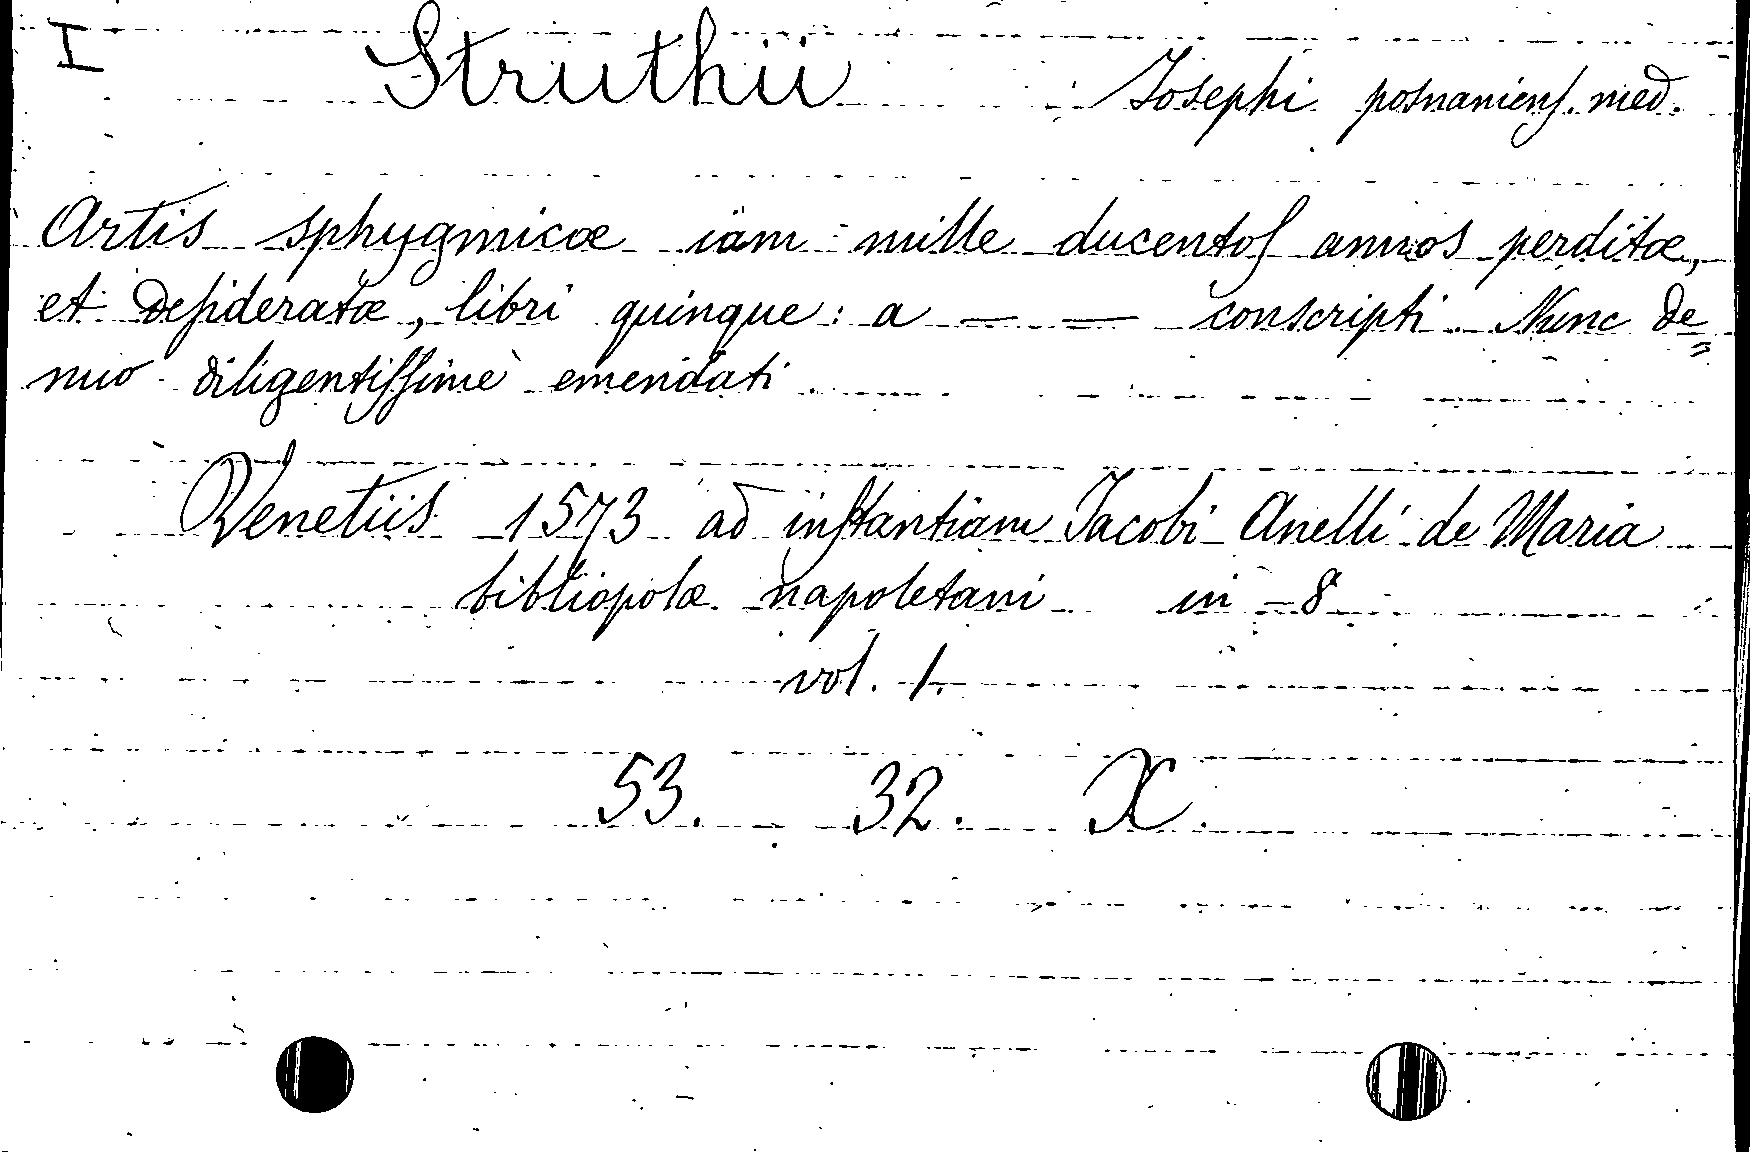 I Struthii Iosephi posnaniens. med.
Artis sphygmicæ iam mille ducentos annos perditæ,
et desideratæ, libri quinque: a — — conscripti Nunc de=
nuo diligentissimè emendati
Venetiis 1573 ad instantiam Jacobi Anelli de Maria
bibliopolæ napoletani in 8
vol. 1.
53. 32. X.